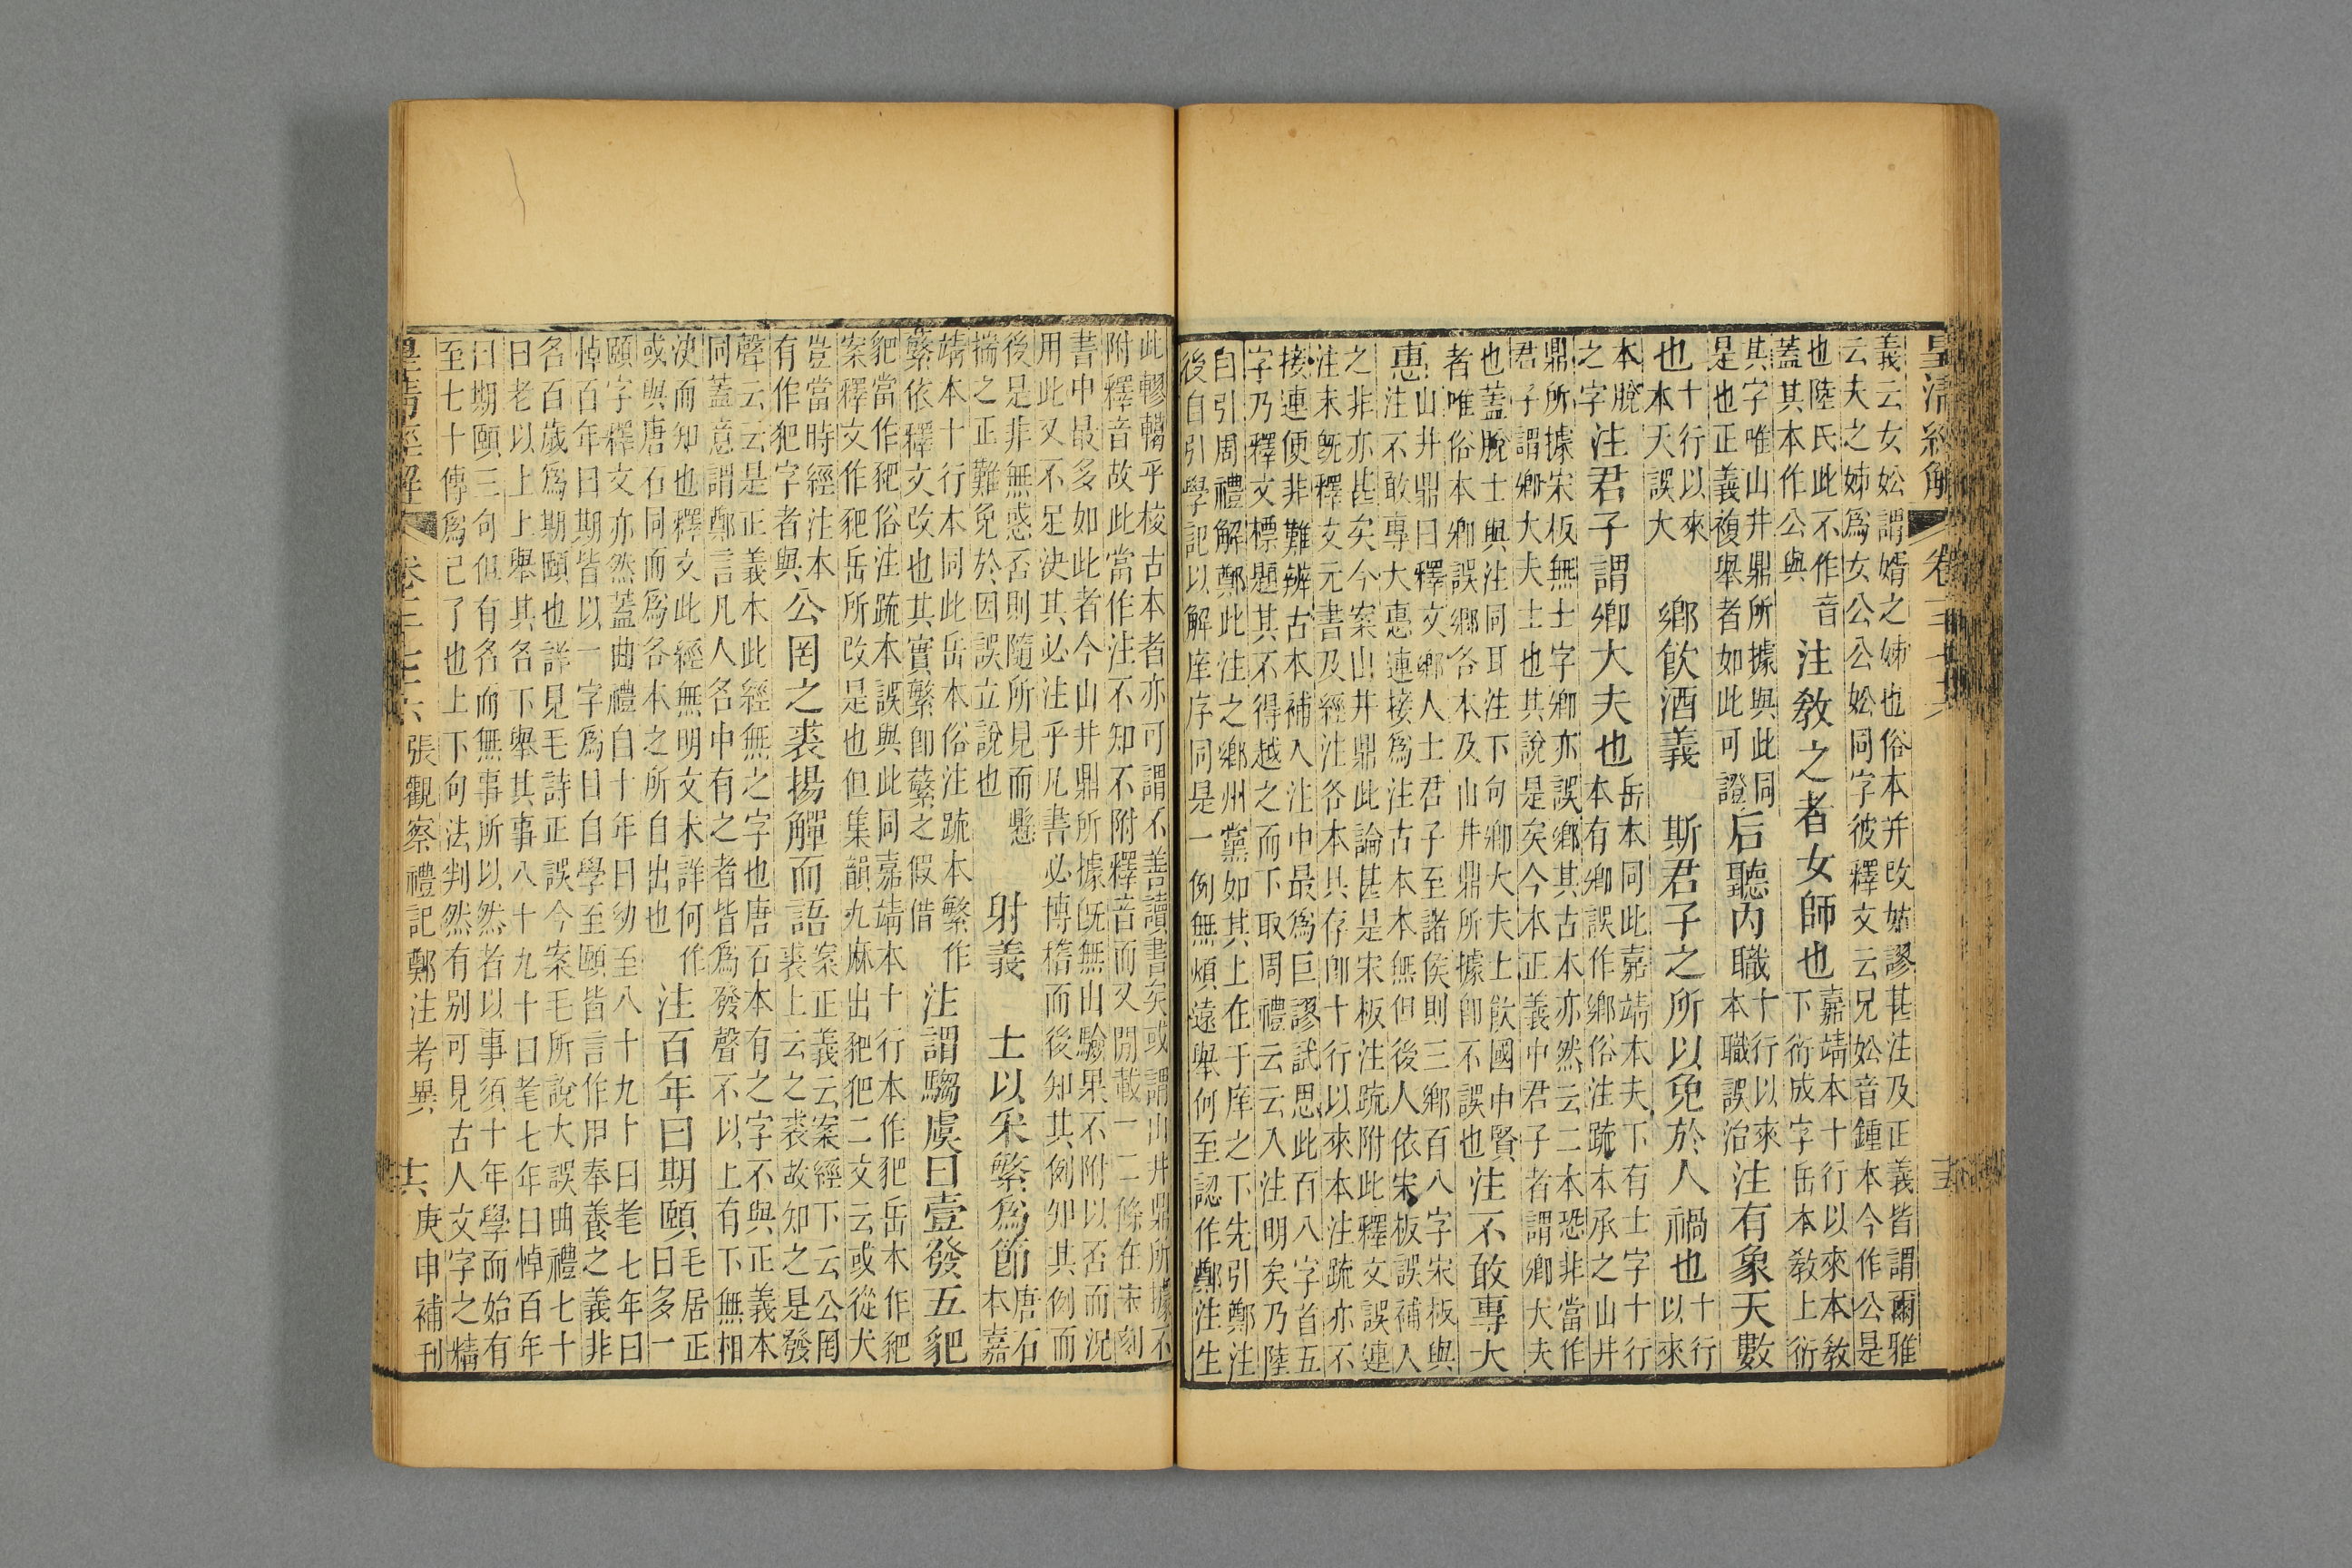 皇清經解
義云女妐謂婿之姊也俗本并改姑謬甚注及正義皆謂爾雅
云夫之姊爲女公公妐同字彼釋文云兄妐音鍾本今作公是
也陸氏此不作音
蓋其本作公與
注敎之者女師也
嘉靖本十行以來本敎
下衍成字岳本敎上衍
其字唯山井鼎所據與此同
是也正義複舉者如此可證
后聽內職
十行以來
本職誤治
注有象天數
也
十行以來
本天誤大
鄉飲酒義 斯君子之所以免於人禍也
十行
以來
本脫
之字
注君子謂卿大夫也
岳本同此嘉靖本夫下有士字十行
本有卿誤作鄉俗注疏本承之山井
鼎所據宋板無士字卿亦誤鄉其古本亦然云二本恐非當作
君子謂卿大夫士也其說是矣今本正義中君子者謂卿大夫
也蓋脫士與注同耳注下句卿大夫士飲國中賢
者唯俗本卿誤鄉各本及山井鼎所據卽不誤也
注不敢專大
惠
山井鼎曰釋文鄉人士君子至諸侯則三鄉百八字宋板與
注不敢專大惠連接爲注古本本無但後人依宋板誤補入
之非亦甚矣今案山井鼎此論甚是宋板注疏附此釋文誤連
注末旣釋文元書及經注各本具存卽十行以來本注疏亦不
接連便非難辨古本補入注中最爲巨謬試思此百八字首五
字乃釋文標題其不得越之而下取周禮云云入注明矣乃陸
自引周禮解鄭此注之鄉州黨如其上在于庠之下先引鄭注
後自引學記以解庠序同是一例無煩遠舉何至認作鄭注生
此轇轕乎校古本者亦可謂不善讀書矣或謂山井鼎所據不
附釋音故此當作注不知不附釋音而又閒載一二條在宋刻
書中最多如此者今山井鼎所據旣無山驗果不附以否而況
用此又不足決其必注乎凡書必博稽而後知其例知其例而
後是非無惑否則隨所見而懸
揣之正難免於因誤立說也
射義 士以采繁爲節
唐石
本嘉
靖本十行本同此岳本俗注疏本繁作
蘩依釋文改也其實繁卽蘩之假借
注謂騶虞曰壹發五豝
豝當作豝俗注疏本誤與此同嘉靖本十行本作豝岳本作豝
案釋文作豝岳所改是也但集韻九麻出豝犯二文云或從犬
豈當時經注本
有作犯字者與
公罔之裘揚觶而語
案正義云案經下云公罔
裘上云之裘故知之是發
聲云云是正義本此經無之字也唐石本有之字不與正義本
同蓋意謂鄭言凡人名中有之者皆爲發聲不以上有下無相
決而知也釋文此經無明文未詳何作
或與唐石同而爲各本之所自出也
注百年曰期頤
毛居正
曰多一
頤字釋文亦然蓋曲禮自十年曰幼至八十九十曰耄七年曰
悼百年曰期皆以一字爲目自學至頤皆言作用奉養之義非
名百歲爲期頤也詳見毛詩正誤今案毛所說大誤曲禮七十
曰老以上上舉其名下舉其事八十九十曰耄七年曰悼百年
曰期頤三句但有名而無事所以然者以事須十年學而始有
至七十傳爲已了也上下句法判然有別可見古人文字之精
皇清經解 張觀察禮記鄭注考異 庚申補刊